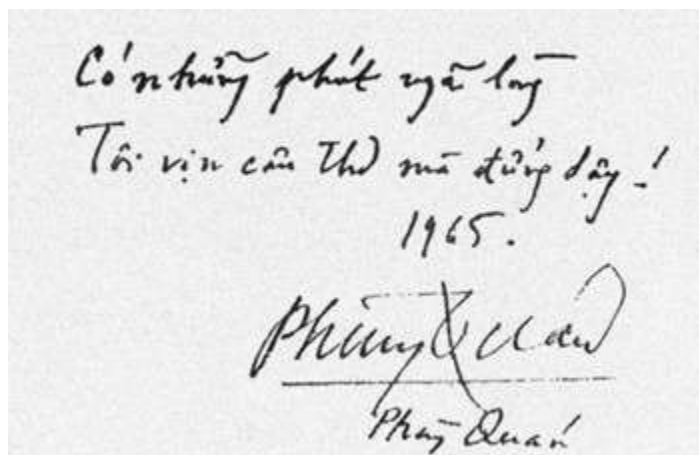 Có những phút ngã lòng
Tôi vịn câu thơ mà đứng dậy!
1965.
Phùng Quán
Phùng Quán